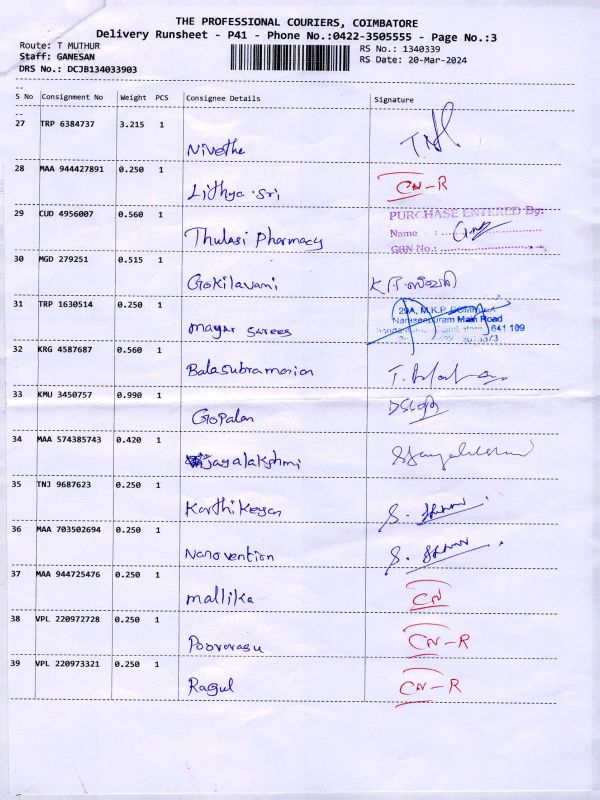 THE PROFESSIONAL COURIERS, COIMBATORE
Delivery Runsheet - P41 - Phone No.:0422-3505555 - Page No.:3
Route: T MUTHUR
RS No.: 1340339
Staff: GANESAN
RS Date: 20-Mar-2024
DRS No.: DCJB134033903
S No Consignment No Weight PCS Consignee Details Signature
27 TRP 6384737 3.215 1
Nivetha
28 MAA 944427891 0.250 1
Lithya.sri CN-R
29 CUD 4956007 0.560 1
PURCHASE ENTERED By:
Thulasi Pharmacy Name :
GRN No.:
30 MGD 279251 0.515 1
Gokilavani
31 TRP 1630514 0.250 1
29A, M.K.P. COMPLEX
Main Road
641 109
mayur sarees
32 KRG 4587687 0.560 1
Balasubramanian
33 KMU 3450757 0.990 1
Gopalan
34 MAA 574385743 0.420 1
Jayalakshmi
35 TNJ 9687623 0.250 1
Karthikeyan
36 MAA 703502694 0.250 1
Nanovention
37 MAA 944725476 0.250 1
mallika CN
38 VPL 220972728 0.250 1
Poovarasu CN-R
39 VPL 220973321 0.250 1
Ragul CN-R